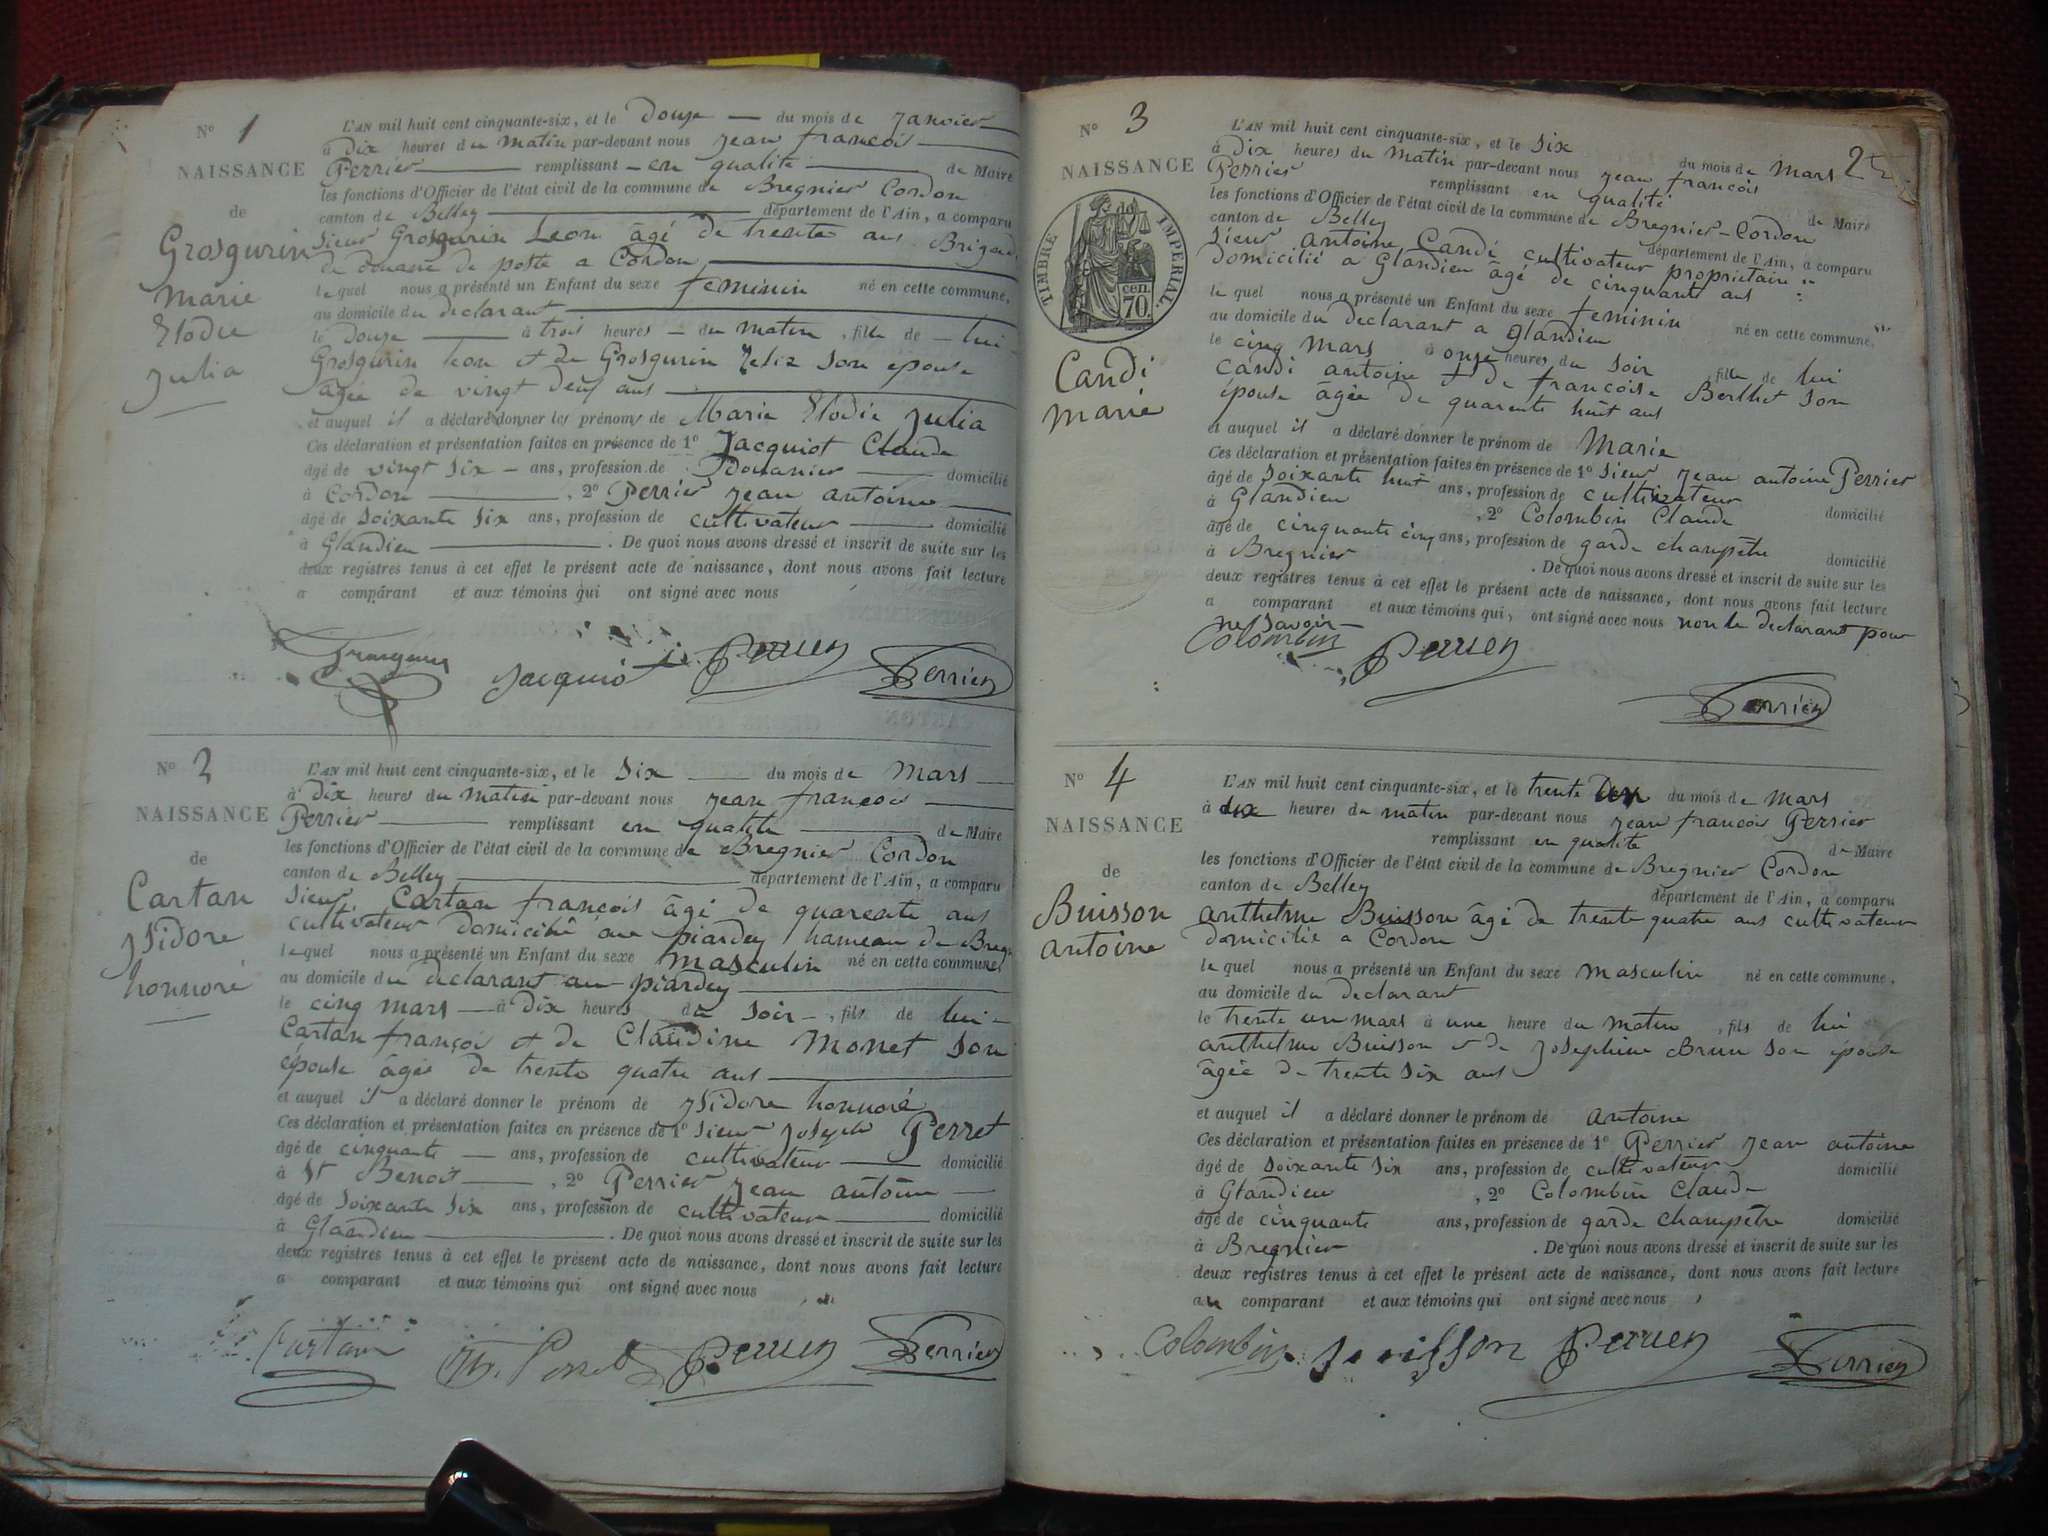 N° 1
NAISSANCE
de
Grosgurin
Marie
Elodie
Julia
L'AN mil huit cent cinquante-six, et le Douze du mois de Janvier
à Dix heures du Matin par-devant nous Jean françois
Perrier remplissant en qualité de Maire
les fonctions d'Officier de l'état civil de la commune de Bregnier Cordon
canton de Belley département de l'Ain, a comparu
Sieur Grosgurin Leon âgé de trente ans Brigad
de douane de poste a Cordon
le quel nous a présenté un Enfant du sexe feminin né en cette commune,
au domicile du declarant
le Douze à trois heures du matin, fille de lui
Grosgurin Leon et de Grosgurin son épouse
âgée de vingt deux ans
et auquel il a déclaré donner les prénoms de Marie Elodie Julia
Ces déclaration et présentation faites en présence de 1° Jacquiot Claude
âgé de vingt six ans, profession de Douanier domicilié
à Cordon, 2° Perrier Jean antoine
âgé de Soixante Six ans, profession de cultivateur domicilié
à Glandieu. De quoi nous avons dressé et inscrit de suite sur les
deux registres tenus à cet effet le présent acte de naissance, dont nous avons fait lecture
a comparant et aux témoins qui ont signé avec nous
Jacquiot Perrier Perrier
N° 2
NAISSANCE
de
Cartan
Isidore
honnoré
L'AN mil huit cent cinquante-six, et le Six du mois de Mars
à Dix heures du Matin par-devant nous Jean francois
Perrier remplissant en qualité de Maire
les fonctions d'Officier de l'état civil de la commune de Bregnier Cordon
canton de Belley département de l'Ain, a comparu
Sieur Cartan françois âgé de quarente ans
cultivateur domicilié au piardey hameau de Bregn
le quel nous a présenté un Enfant du sexe Masculin né en cette commune
au domicile du declarant au piardey
le cinq mars à Dix heures du Soir, fils de lui
Cartan françois et de Claudine Monet Son
épouse âgée de trente quatre ans
et auquel il a déclaré donner le prénom de Isidore honnoré
Ces déclaration et présentation faites en présence de 1° Sieur Joseph Perret
âgé de cinquante ans, profession de cultivateur domicilié
à St Benoit, 2° Perrier Jean antoine
âgé de Soixante Six ans, profession de cultivateur domicilié
à Glandieu. De quoi nous avons dressé et inscrit de suite sur les
deux registres tenus à cet effet le présent acte de naissance, dont nous avons fait lecture
a comparant et aux témoins qui ont signé avec nous
Cartan Perret Perrier Perrier
2
N° 3
NAISSANCE
TIMBRE IMPERIAL
70 cen.
Candi
Marie
L'AN mil huit cent cinquante-six, et le Six du mois de Mars
à Dix heures du Matin par-devant nous Jean francois
Perrier remplissant en qualité de Maire
les fonctions d'Officier de l'état civil de la commune de Bregnier-Cordon
canton de Belley département de l'Ain, a comparu
Sieur antoine Candi cultivateur proprietaire
domicilié a Glandieu âgé de cinquante ans
le quel nous a présenté un Enfant du sexe feminin né en cette commune,
au domicile du declarant a glandieu
le cinq Mars à onze heures du Soir fille de lui
candi antoine et de francoise Berthet Son
épouse âgée de quarente huit ans
et auquel il a déclaré donner le prénom de Marie
Ces déclaration et présentation faites en présence de 1° Sieur Jean antoine Perrier
âgé de Soixante huit ans, profession de cultivateur domicilié
à Glandieu, 2° Colombin Claude
âgé de cinquante cinq ans, profession de garde champêtre domicilié
à Bregnier. De quoi nous avons dressé et inscrit de suite sur les
deux registres tenus à cet effet le présent acte de naissance, dont nous avons fait lecture
a comparant et aux témoins qui, ont signé avec nous non le declarant pour
ne savoir
Colombin Perrier
Perrier
N° 4
NAISSANCE
de
Buisson
antoine
L'AN mil huit cent cinquante-six, et le trente du mois de Mars
à dix heures du matin par-devant nous Jean francois Perrier
remplissant en qualité de Maire
les fonctions d'Officier de l'état civil de la commune de Bregnier Cordon
canton de Belley département de l'Ain, a comparu
anthelme Buisson âgé de trente quatre ans cultivateur
domicilié a Cordon
le quel nous a présenté un Enfant du sexe masculin né en cette commune,
au domicile du declarant
le trente un mars à une heure du matin, fils de lui
anthelme Buisson et de Josephine Brun son épouse
âgée de trente six ans
et auquel il a déclaré donner le prénom de antoine
Ces déclaration et présentation faites en présence de 1° Perrier Jean antoine
âgé de Soixante Six ans, profession de cultivateur domicilié
à Glandieu, 2° Colombin Claude
âgé de cinquante ans, profession de garde champêtre domicilié
à Bregnier. De quoi nous avons dressé et inscrit de suite sur les
deux registres tenus à cet effet le présent acte de naissance, dont nous avons fait lecture
au comparant et aux témoins qui ont signé avec nous
Colombin Buisson Perrier Perrier